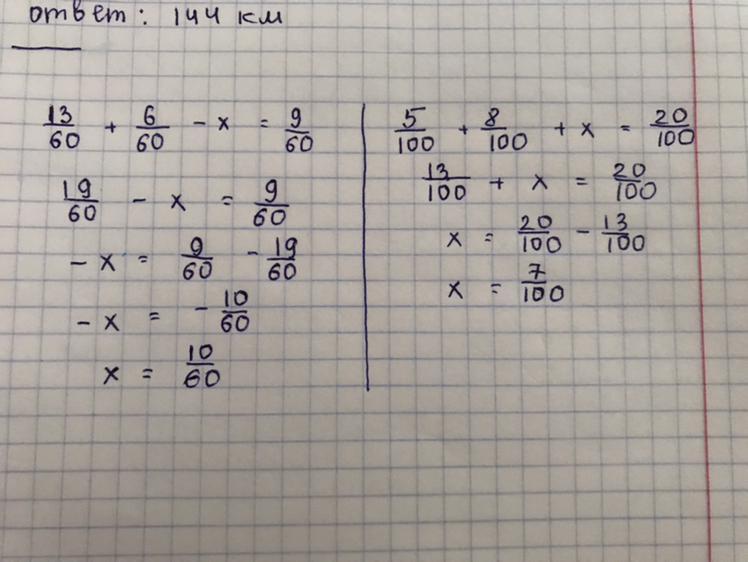 ответ: 144 км
13/60 + 6/60 - x = 9/60
19/60 - x = 9/60
- x = 9/60 - 19/60
- x = - 10/60
x = 10/60
5/100 + 8/100 + x = 20/100
13/100 + x = 20/100
x = 20/100 - 13/100
x = 7/100